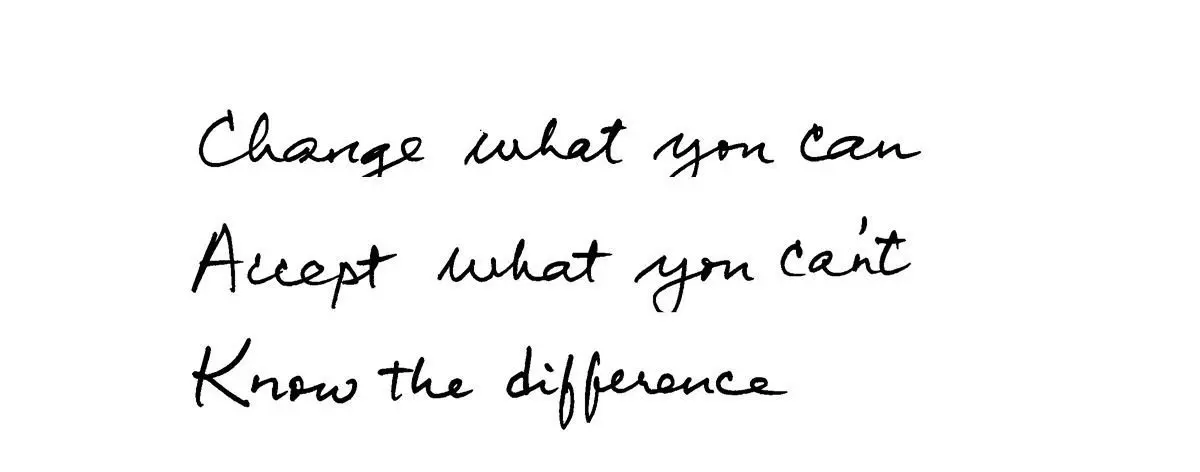 Change what you can
Accept what you can't
Know the difference